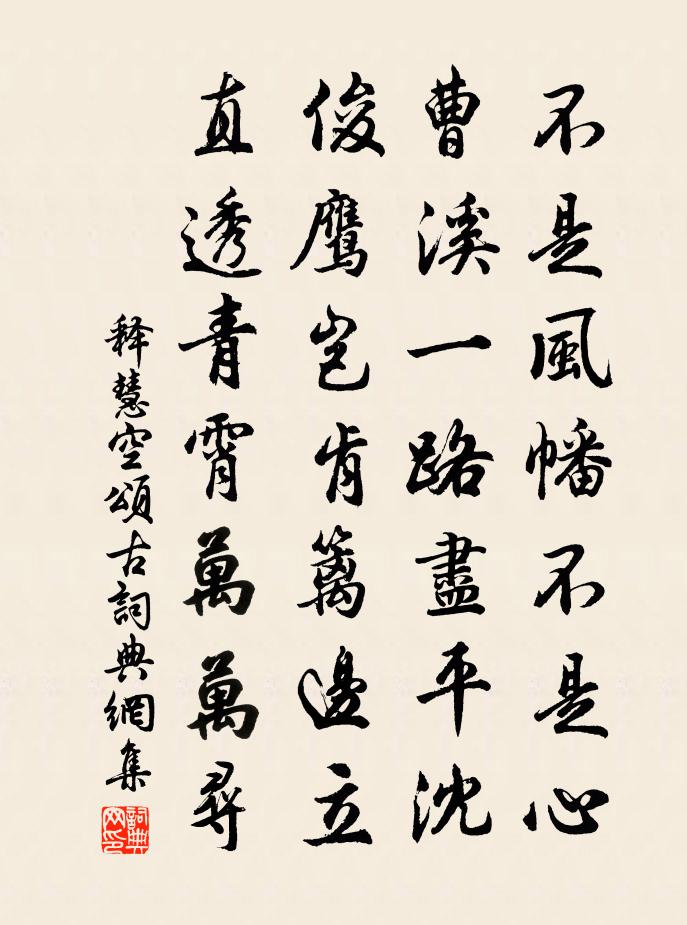 不是風幡不是心
曹溪一路盡平沈
俊鷹豈肯篱邊立
直透青霄萬萬尋
释慧空頌古詞典網集
詞典
网印